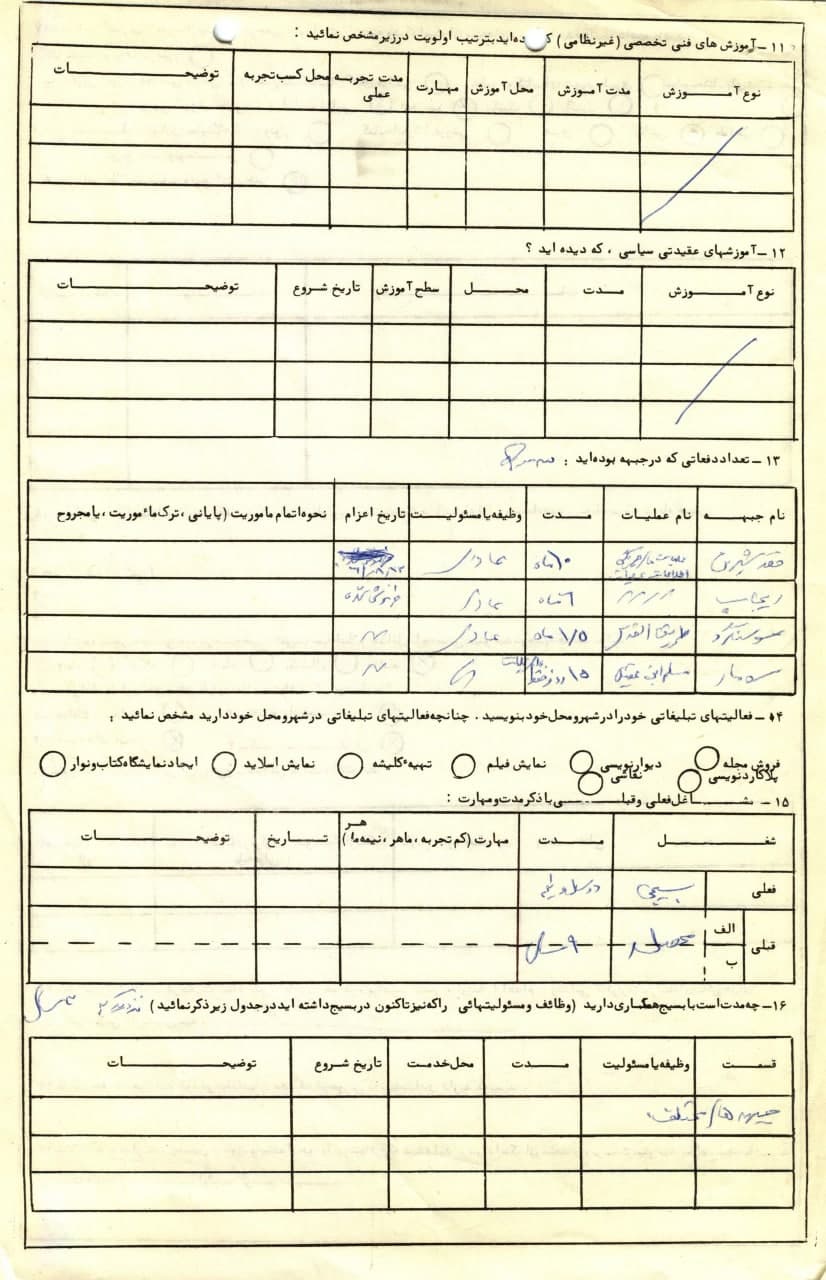 ۱۱ – آموزش های فنی تخصصی (غیرنظامی) که دیده اید بترتیب اولویت در زیر مشخص نمائید :
نوع آمـوزش مدت آمـوزش محل آموزش مهارت مدت تجربه عملی محل کسب تجربه توضیحـات
۱۲ – آموزشهای عقیدتی سیاسی ، که دیده اید ؟
نوع آمـوزش مـدت محـل سطح آموزش تاریخ شروع توضیحـات
۱۳ – تعداد دفعاتی که در جبهه بوده اید :
نام جبهـه نام عملیات مـدت وظیفه یا مسئولیـت تاریخ اعزام نحوه اتمام ماموریت (پایانی ، ترک ماموریت ، یا مجروح
قصر شیرین ۱۰ ماه عادی
ریجاب ۶ ماه عادی
سوسنگرد طریق القدس ۱/۵ ماه عادی
سومار مسلم ابن عقیل ۱۵ روز
۱۴ – فعالیتهای تبلیغاتی خود را در شهر و محل خود بنویسید . چنانچه فعالیتهای تبلیغاتی در شهر و محل خود دارید مشخص نمائید :
فروش مجله دیوارنویسی نمایش فیلم تهیه کلیشه نمایش اسلاید ایجاد نمایشگاه کتاب و نوار
پلاکاردنویسی نقاشی
۱۵ – شـاغل فعلی و قبلـی با ذکر مدت و مهارت :
شغـل مـدت مهارت (کم تجربه ، ماهر ، نیمه ماهر) تـاریخ توضیحـات
فعلی بسیجی
قبلی الف محصل ۹ سال
ب
۱۶ – چه مدت است با بسیج همکاری دارید (وظائف و مسئولیتهائی را که نیز تاکنون در بسیج داشته اید در جدول زیر ذکر نمائید)
قسمـت وظیفه یا مسئولیت مـدت محل خدمت تاریخ شروع توضیحـات
جبهه ها